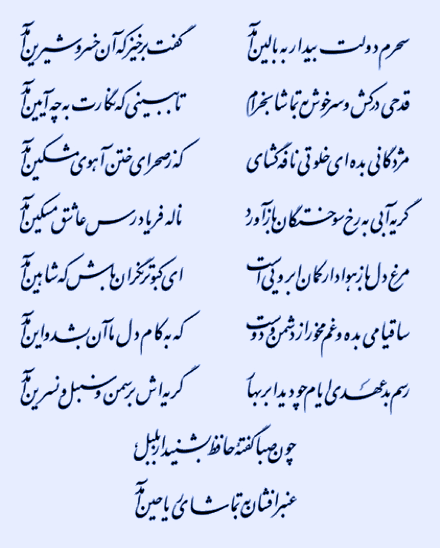 سحرم دولت بیدار به بالین آمد گفت برخیز که آن خسرو شیرین آمد
قدحی درکش و سرخوش به تماشا بخرام تا ببینی که نگارت به چه آیین آمد
مژدگانی بده ای خلوتی نافه گشای که ز صحرای ختن آهوی مشکین آمد
گریه آبی به رخ سوختگان بازآورد ناله فریادرس عاشق مسکین آمد
مرغ دل باز هوادار کمان ابروییست ای کبوتر نگران باش که شاهین آمد
ساقیا می بده و غم مخور از دشمن و دوست که به کام دل ما آن بشد و این آمد
رسم بدعهدی ایام چو دید ابر بهار گریه‌اش بر سمن و سنبل و نسرین آمد
چون صبا گفته حافظ بشنید از بلبل
عنبرافشان به تماشای ریاحین آمد